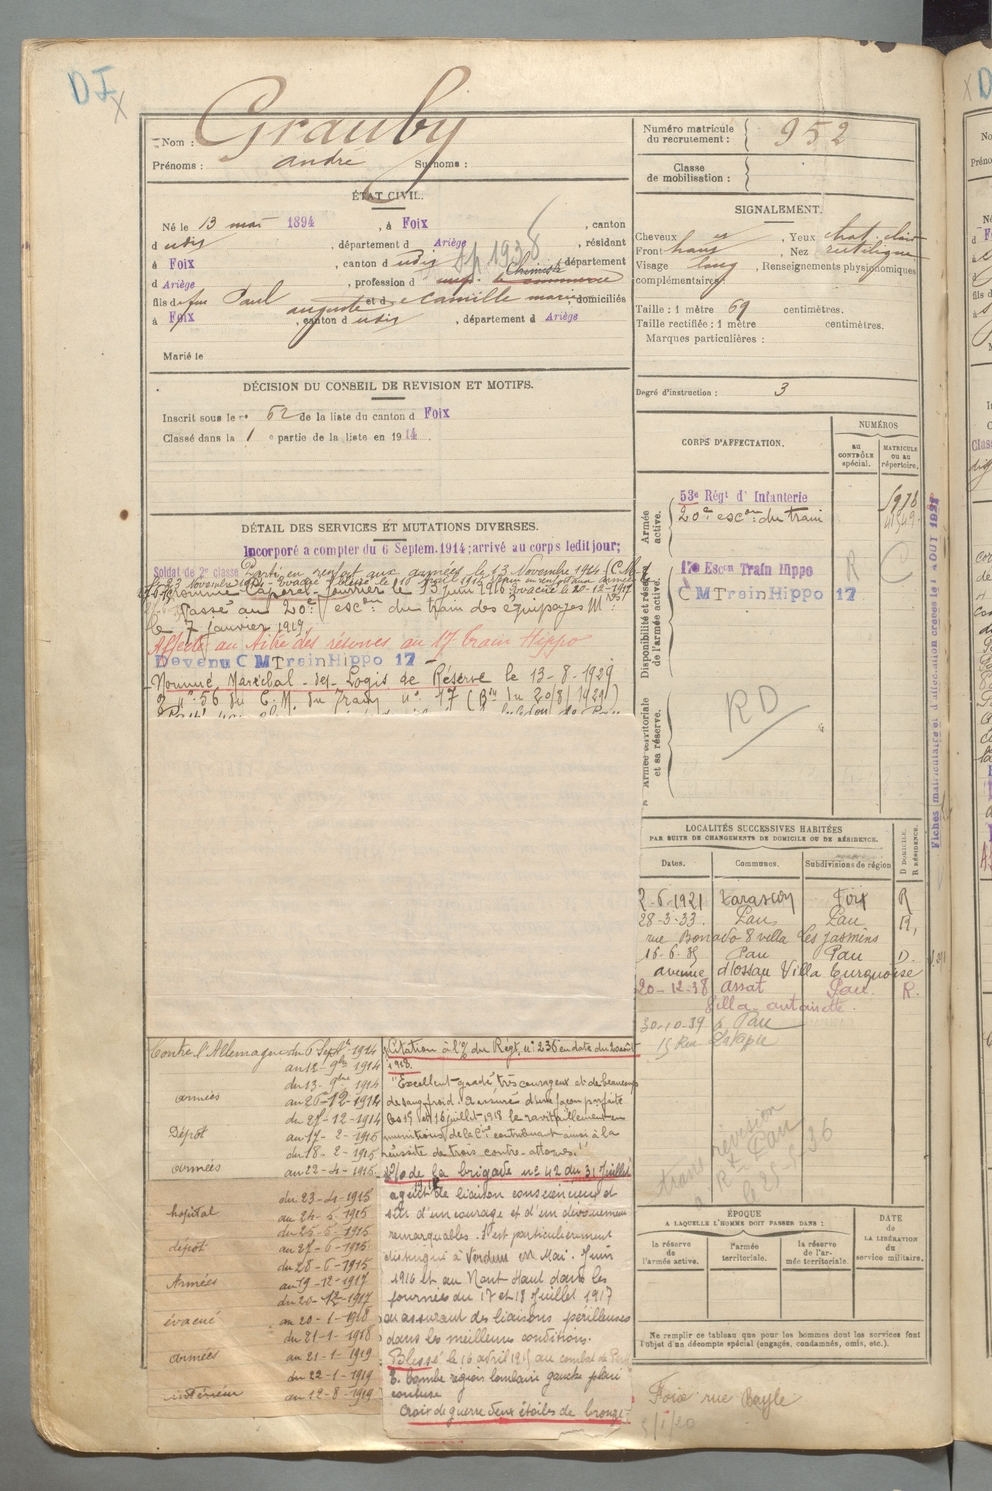 DI
Nom : Grauby
Prénoms : andré Surnoms :
ÉTAT CIVIL.
Né le 13 mai 1894, à Foix, canton
d udit, département d Ariège, résidant
à Foix, canton d udit, département
d Ariège, profession d Chimiste
fils de feu Paul auguste et de Camille marie domiciliés
à Foix, canton d udit, département d Ariège
Marié le
sp 1938
DÉCISION DU CONSEIL DE REVISION ET MOTIFS.
Inscrit sous le n° 62 de la liste du canton d Foix
Classé dans la 1e partie de la liste en 1914.
DÉTAIL DES SERVICES ET MUTATIONS DIVERSES.
Incorporé a compter du 6 Septem. 1914; arrivé au corps ledit jour;
Soldat de 2e classe Parti en renfort aux armées le 13 Novembre 1914
Caporal-fourrier le 15 juin 1916 évacué le 20-12-1917
Passé au 20e escon du train des équipages Mre
le 7 janvier 1919
Affecté au titre des réserves au 17 train Hippo
Devenu C M Train Hippo 17
Nommé Maréchal-des-Logis de Réserve le 13-8-1929
n° 56 du C.M. du Train n° 17 (Bin du 20/8/1929)
Contre l'Allemagne du 6 Septe 1914
au 12-9bre 1914
armées du 13-9bre 1914
au 26-12-1914
Dépôt du 27-12-1914
au 17-2-1915
armées du 18-2-1915
au 22-4-1915
hopital du 23-4-1915
au 24-5-1915
dépôt du 25-5-1915
au 27-6-1915
Armées du 28-6-1915
au 19-12-1917
évacué du 20-12-1917
au 20-1-1918
armées du 21-1-1918
au 21-1-1919
intérieur du 22-1-1919
au 12-8-1919
Citation à l'O/ du Régt n° 236 en date du 2 août
1918.
"Excellent gradé, très courageux et de beaucoup
de sang froid. A assuré d'une façon parfaite
les 15 et 16 juillet 1918 le ravitaillement en
munitions de la Cie contribuant ainsi à la
réussite de trois contre-attaques."
O/ de la brigade n° 42 du 31 Juillet
agent de liaison consciencieux et
sûr d'un courage et d'un dévouement
remarquables. S'est particulièrement
distingué à Verdun en Mai. Juin
1916 et au Mont Haut dans les
journées du 17 et 18 Juillet 1917
en assurant des liaisons périlleuses
dans les meilleures conditions.
Blessé le 16 avril 1915 au combat de
E. bombe région lombaire gauche plaie
contuse
Croix de guerre deux étoiles de bronze
Numéro matricule du recrutement : 952
Classe de mobilisation :
SIGNALEMENT.
Cheveux, Yeux chat. clair
Front, Nez rectiligne
Visage long, Renseignements physionomiques
complémentaires :
Taille : 1 mètre 69 centimètres.
Taille rectifiée : 1 mètre centimètres.
Marques particulières :
Degré d'instruction : 3
CORPS D'AFFECTATION.
NUMÉROS
au CONTRÔLE spécial.
MATRICULE OU AU répertoire.
Armée active.
53e Régt d' Infanterie
20e escon du train
Disponibilité et réserve de l'armée active.
17e Escon Train Hippo R C
C M Train Hippo 17
Armée territoriale et sa réserve.
RD
LOCALITÉS SUCCESSIVES HABITÉES
PAR SUITE DE CHANGEMENTS DE DOMICILE OU DE RÉSIDENCE.
Dates. Communes. Subdivisions de région D DOMICILE. R RÉSIDENCE.
2-6-1921 Tarascon Foix R
28-3-33. Pau Pau R,
rue Bonado 8 villa les jasmins
16-6-35 Pau Pau D.
avenue d'Ossau Villa Turquoise
20-12-38 Assat Pau. R.
Villa antoinette
30-10-39 à Pau
15 Rue
trans révision
à Rt Pau
le 25-5-36
ÉPOQUE
A LAQUELLE L'HOMME DOIT PASSER DANS :
la réserve de l'armée active.
l'armée territoriale.
la réserve de l'armée territoriale.
DATE de LA LIBÉRATION du service militaire.
Ne remplir ce tableau que pour les hommes dont les services font
l'objet d'un décompte spécial (engagés, condamnés, omis, etc.).
Foix rue Bayle
5/1/20
Fiches matricules et d'affectation créées le 1 AOUT 1921